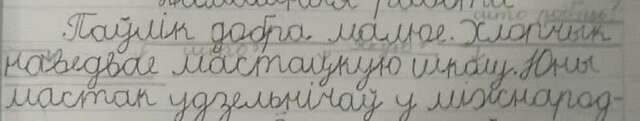 Паўлік добра малюе. Хлопчык
наведвае мастацкую школу. Юны
мастак удзельнічаў у міжнарод-